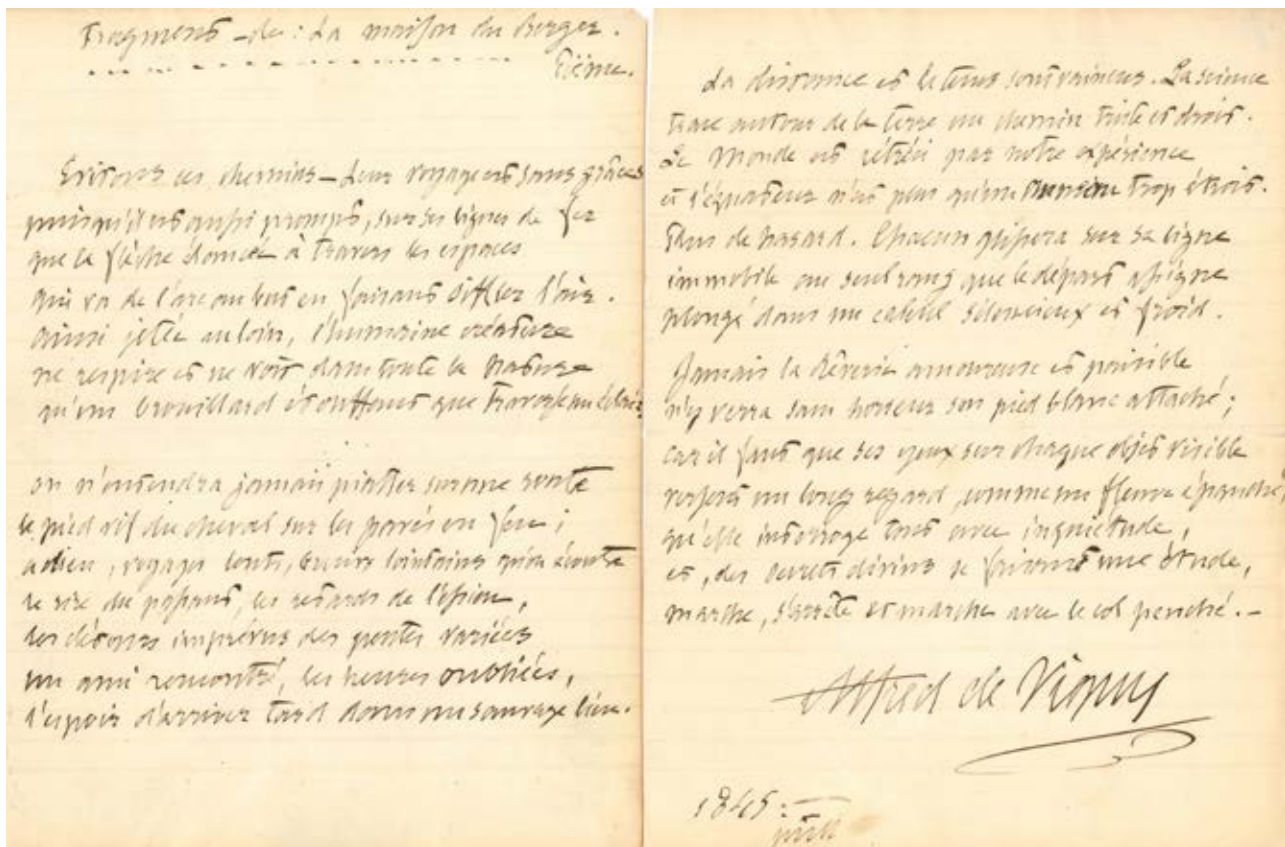 Fragments - de : La maison du Berger.
Poëme.
Evitons ces chemins - Leur voyage est sans grâces
puisqu'il est aussi prompt, sur ses lignes de fer
que la flèche élancée à travers les espaces
qui va de l'arc au but en faisant siffler l'air.
ainsi jetée au loin, l'humaine créature
ne respire et ne voit dans toute la nature
qu'un brouillard étouffant que traverse un éclair
on n'entendra jamais piaffer sur une route
le pied vif du cheval sur les pavés en feu ;
adieu, voyages lents, bruits lointains qu'on écoute
le rire du passant, les retards de l'essieu,
les détours imprévus des pentes variées
un ami rencontré, les heures oubliées,
l'espoir d'arriver tard dans un sauvage lieu.
La distance et le temps sont vaincus. La science
trace autour de la terre un chemin triste et droit.
Le Monde est rétréci par notre expérience
et l'équateur n'est plus qu'un anneau trop étroit.
Plus de hasard. Chacun glissera sur sa ligne
immobile au seul rang que le départ assigne
plongé dans un calcul silencieux et froid.
Jamais la Rêverie amoureuse et paisible
n'y verra sans horreur son pied blanc attaché ;
car il faut que ses yeux sur chaque objet visible
versent un long regard, comme un fleuve épanché,
qu'elle interroge tout avec inquiétude,
et, des secrets divins se faisant une étude,
marche, s'arrête et marche avec le col penché. -
Alfred de Vigny
1845 :